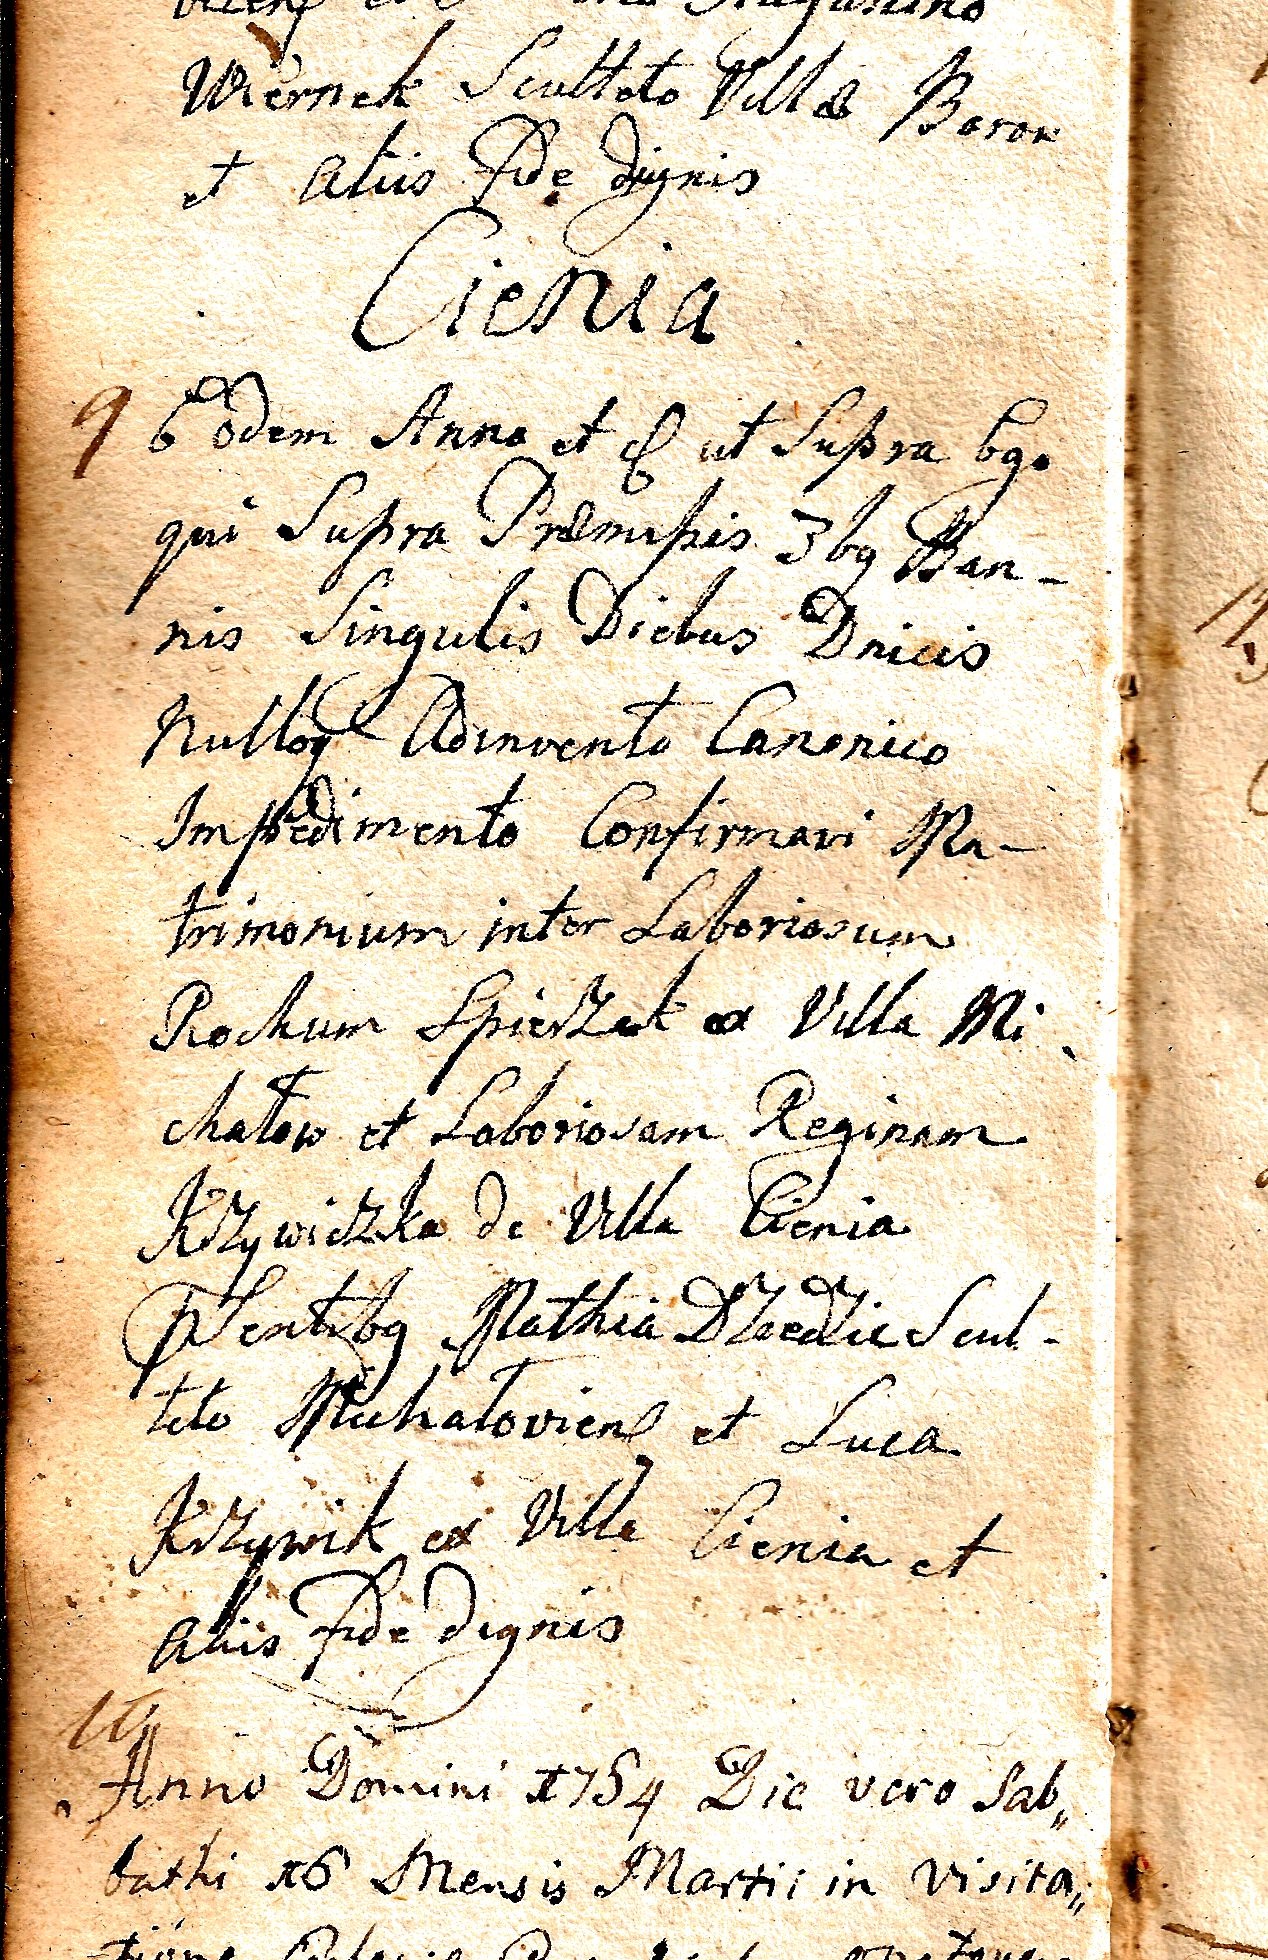 Wiernek Sculteto Villæ Borow
et aliis Fide dignis
Cienia
9 Eodem Anno et ut Supra Ego
qui Supra Præmissis 3bg Ban-
nis Singulis Diebus Dnicis
Nulloq Adinvento Canonico
Impedimento Confirmavi Ma-
trimonium inter Laboriosum
Rochum Spierzak ex Villa Mi
chałow et Laboriosam Reginam
Krzywiczka de Villa Cienia
pSentibg Mathia Dziedzic Scul-
teto Michałovien et Luca
Krzywik ex Villa Cienia et
aliis Fide dignis
10
Anno Domini 1754 Die vero Sab„
bathi 16 Mensis Martii in Visita„